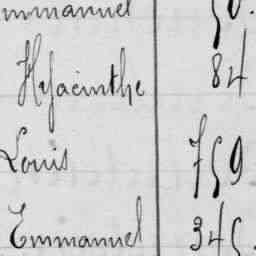 mmanuel 50.
Hyacinthe 84
Louis 759
Emmanuel 345.